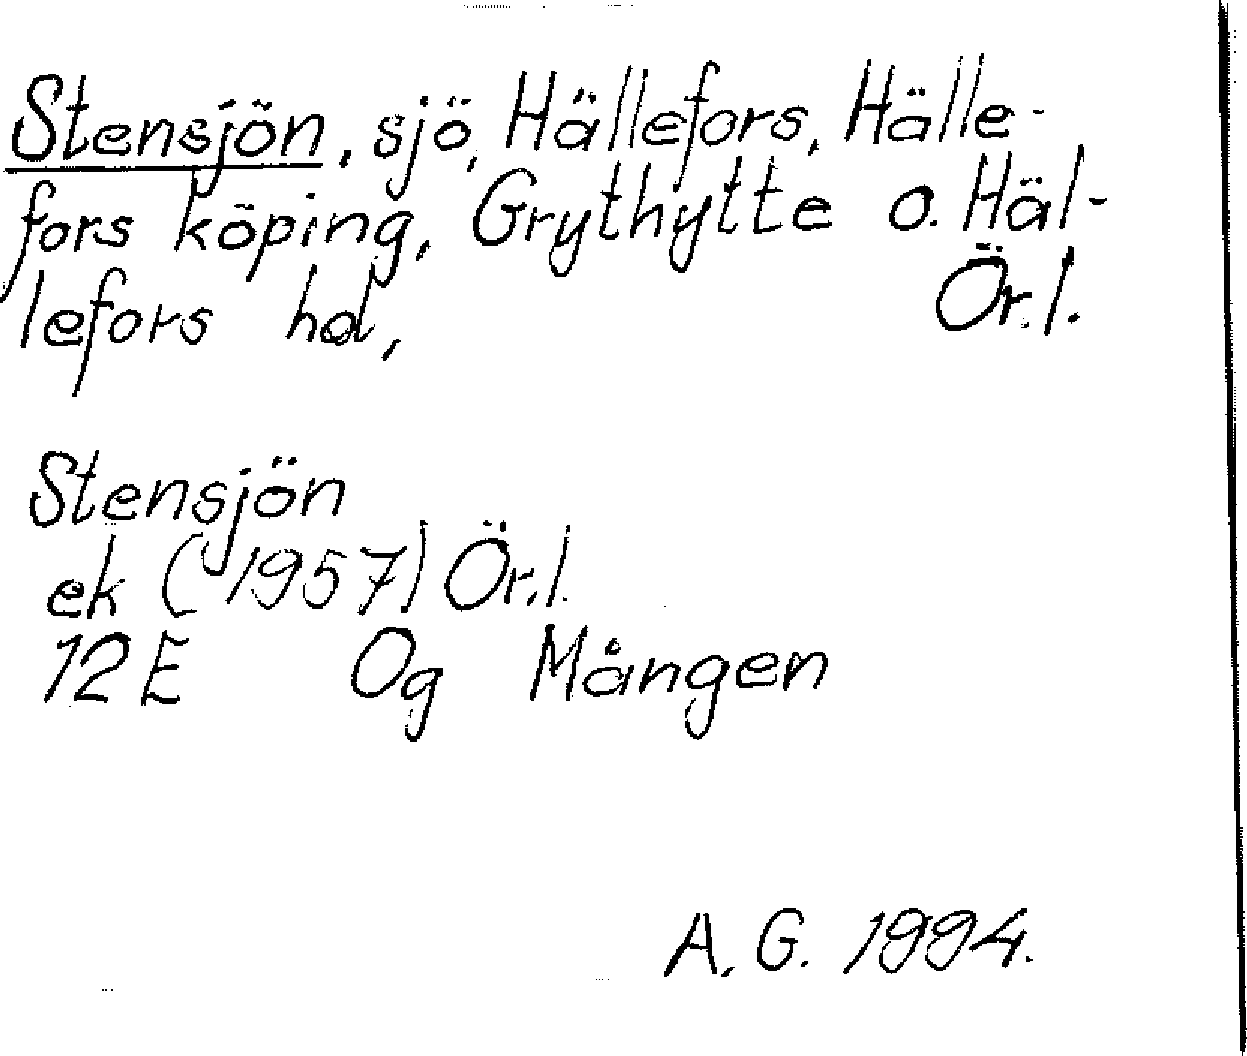 Stensjön, sjö, Hällefors, Hälle-
fors köping, Grythytte o. Häl-
lefors hd, Ör.l.
Stensjön
ek (1957) Ör.l.
12E Og Mången
A.G. 1994.